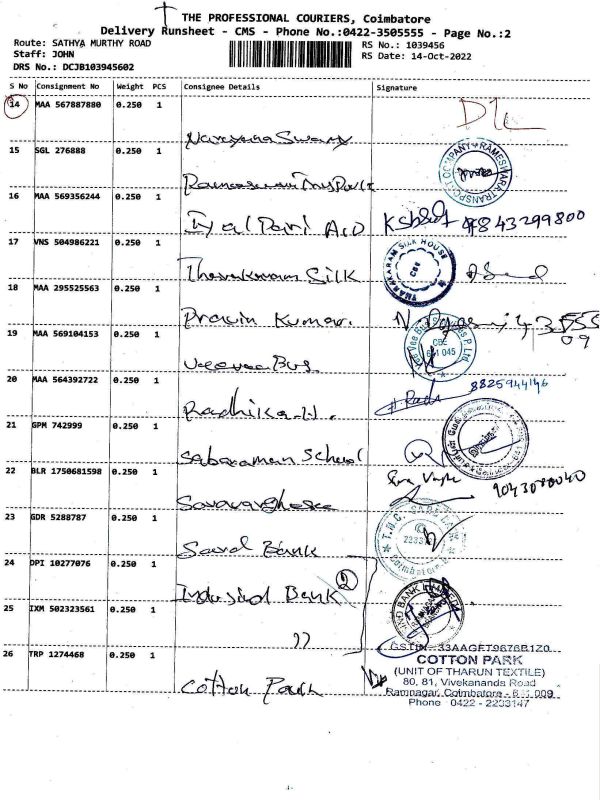 THE PROFESSIONAL COURIERS, Coimbatore
Delivery Runsheet - CMS - Phone No.:0422-3505555 - Page No.:2
Route: SATHYA MURTHY ROAD
Staff: JOHN
DRS No.: DCJB103945602
RS No.: 1039456
RS Date: 14-Oct-2022
S No Consignment No Weight PCS Consignee Details Signature
14 MAA 567887880 0.250 1
Narayana Swamy
15 SGL 276888 0.250 1
COMPANY RAMESWARA TRANSPORT
16 MAA 569356244 0.250 1
17 VNS 504986221 0.250 1
THARAKARAM SILK HOUSE
CBE
Tharakaram Silk
18 MAA 295525563 0.250 1
Pravin Kumar.
19 MAA 569104153 0.250 1
CBE
641 045
Veevee Bus
20 MAA 564392722 0.250 1
8825944146
Radhika.
21 GPM 742999 0.250 1
Sabaraman School
22 BLR 1750681598 0.250 1
9043080040
23 GDR 5288787 0.250 1
Saral Bank
24 DPI 10277076 0.250 1
Indusind Bank 2
25 IXM 502323561 0.250 1
"
26 TRP 1274468 0.250 1
Cotton Park
GSTIN - 33AAGFT9676B1Z0
COTTON PARK
(UNIT OF THARUN TEXTILE)
80, 81, Vivekananda Road
Ramnagar, Coimbatore - 641 009
Phone 0422 - 2233147